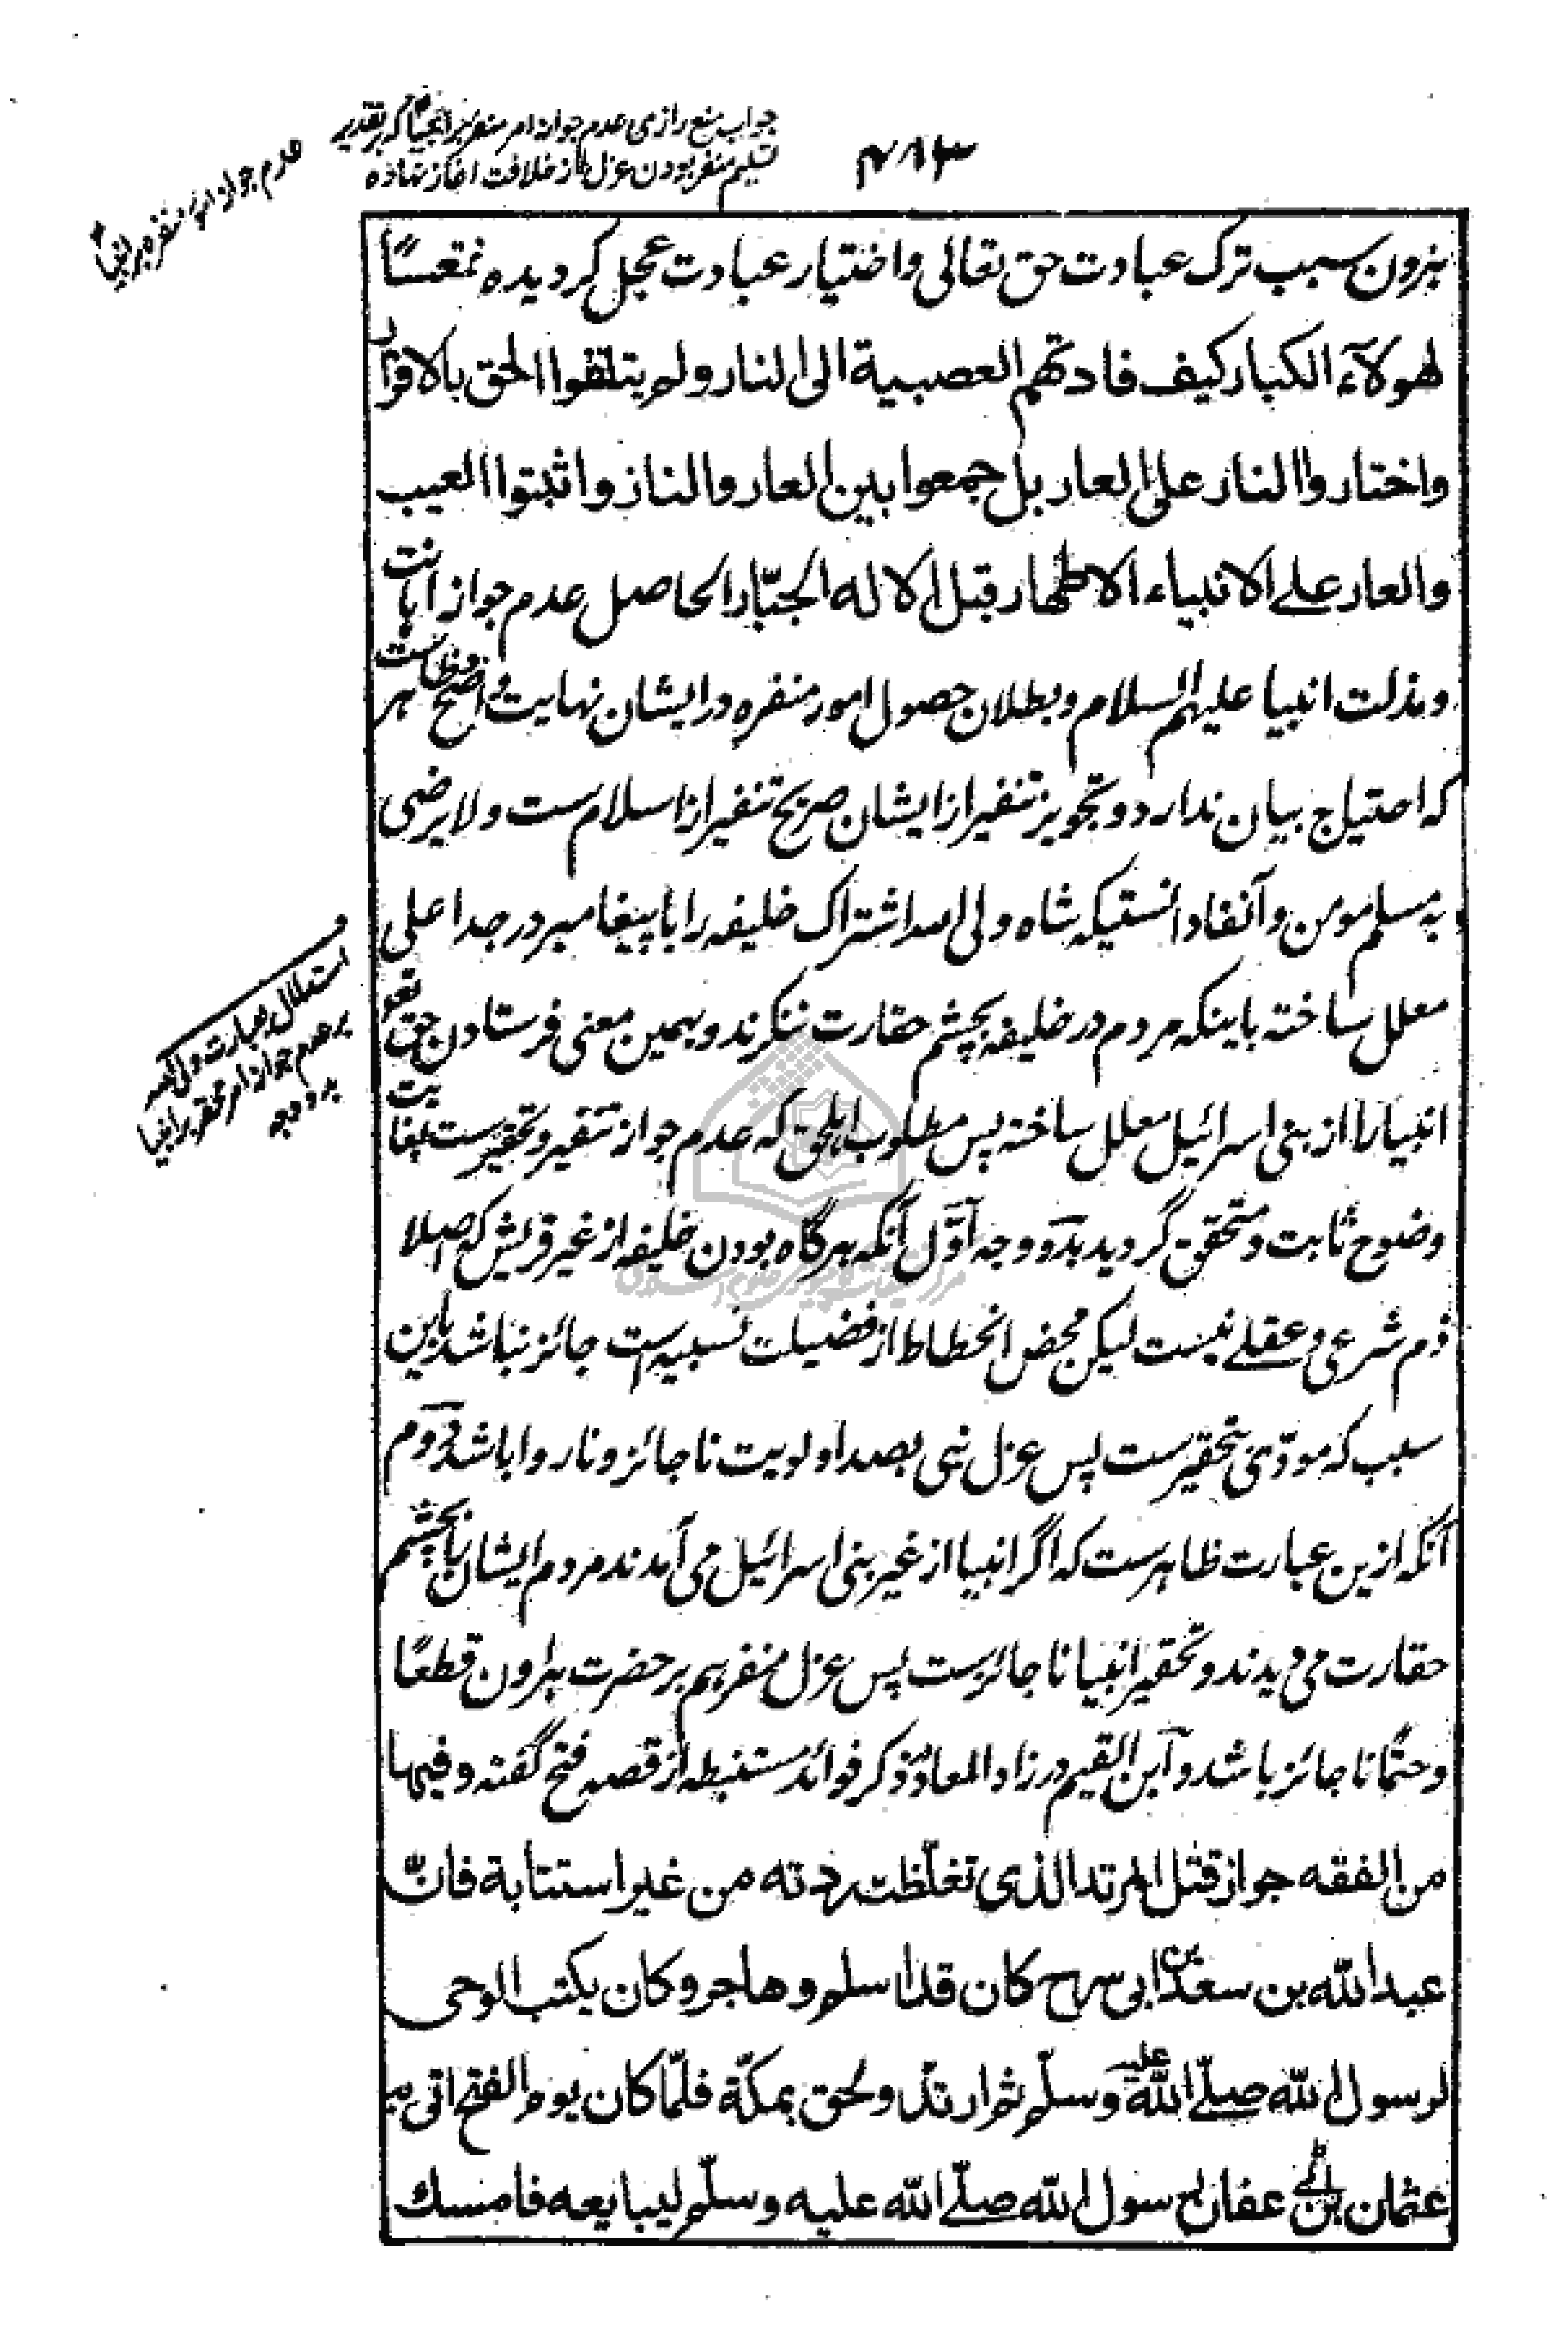 ۴۸۳
جواب منع رازی عدم جواز امر منفر بر انبیا که بر تقدیر
تسلیم منفر بودن عزل از خلافت آغاز نهاده
عدم جواز امور منفره بر نبی
بهرون سبب ترک عبادت حق تعالی و اختیار عبادت عجل گردیده فتعسًا
لهولآء الکبار کیف قادتهم العصبیة الی النار ولم یتلقوا الحق بالاقرار
واختاروا النار علی العار بل جمعوا بین العار والنار واثبتوا العیب
والعار علی الانبیاء الاطهار قبل الاله الجبّار الحاصل عدم جواز اهانت
و مذلت انبیا علیهم السلام و بطلان حصول امور منفره در ایشان نهایت واضح و ظاهرست
که احتیاج بیان ندارد و تجویز تنفیر از ایشان صریح تنفیر از اسلام ست ولا یرضی
به مسلم مومن و آنفا دانستیکه شاه ولی الله اشتراک خلیفه را با پیغامبر در جد اعلی
معلل ساخته باینکه مردم در خلیفه بچشم حقارت ننگرند و بهمین معنی فرستادن حق تعو
انبیا را از بنی اسرائیل معلل ساخته پس مطلوب اهلحق که عدم جواز تنفیر و تحقیرست بغایت
وضوح ثابت و متحقق گردید بدو وجه اوّل آنکه هرگاه بودن خلیفه از غیر قریش که اصلا
ذم شرعی و عقلی نیست لیکن محض انحطاط از فضیلت نسبیه است جائز نباشد باین
سبب که مودّی بتحقیرست پس عزل نبی بصد اولویت ناجائز و ناروا باشد دوم
آنکه ازین عبارت ظاهرست که اگر انبیا از غیر بنی اسرائیل می آمدند مردم ایشان را بچشم
حقارت می دیدند و تحقیر انبیا ناجائزست پس عزل منفر هم بر حضرت هارون قطعًا
و حتمًا ناجائز باشد و ابن القیم در زاد المعاد در ذکر فوائد مستنبطه از قصه فتح گفته وفیها
من الفقه جواز قتل المرتد الذی تغلّظت ردته من غیر استتابة فانّ
عبدالله بن سعد بن ابی سرح کان قد اسلم وهاجر وکان یکتب الوحی
لرسول الله صلّی الله علیه وسلّم ثم ارتدّ ولحق بمکّة فلمّا کان یوم الفتح اتی به
عثمان بن عفان رسول الله صلّی الله علیه وسلّم لیبایعه فامسک
استدلال بعبارت ولی الله
بر عدم جواز امر محقر بر انبیا
بدو وجه